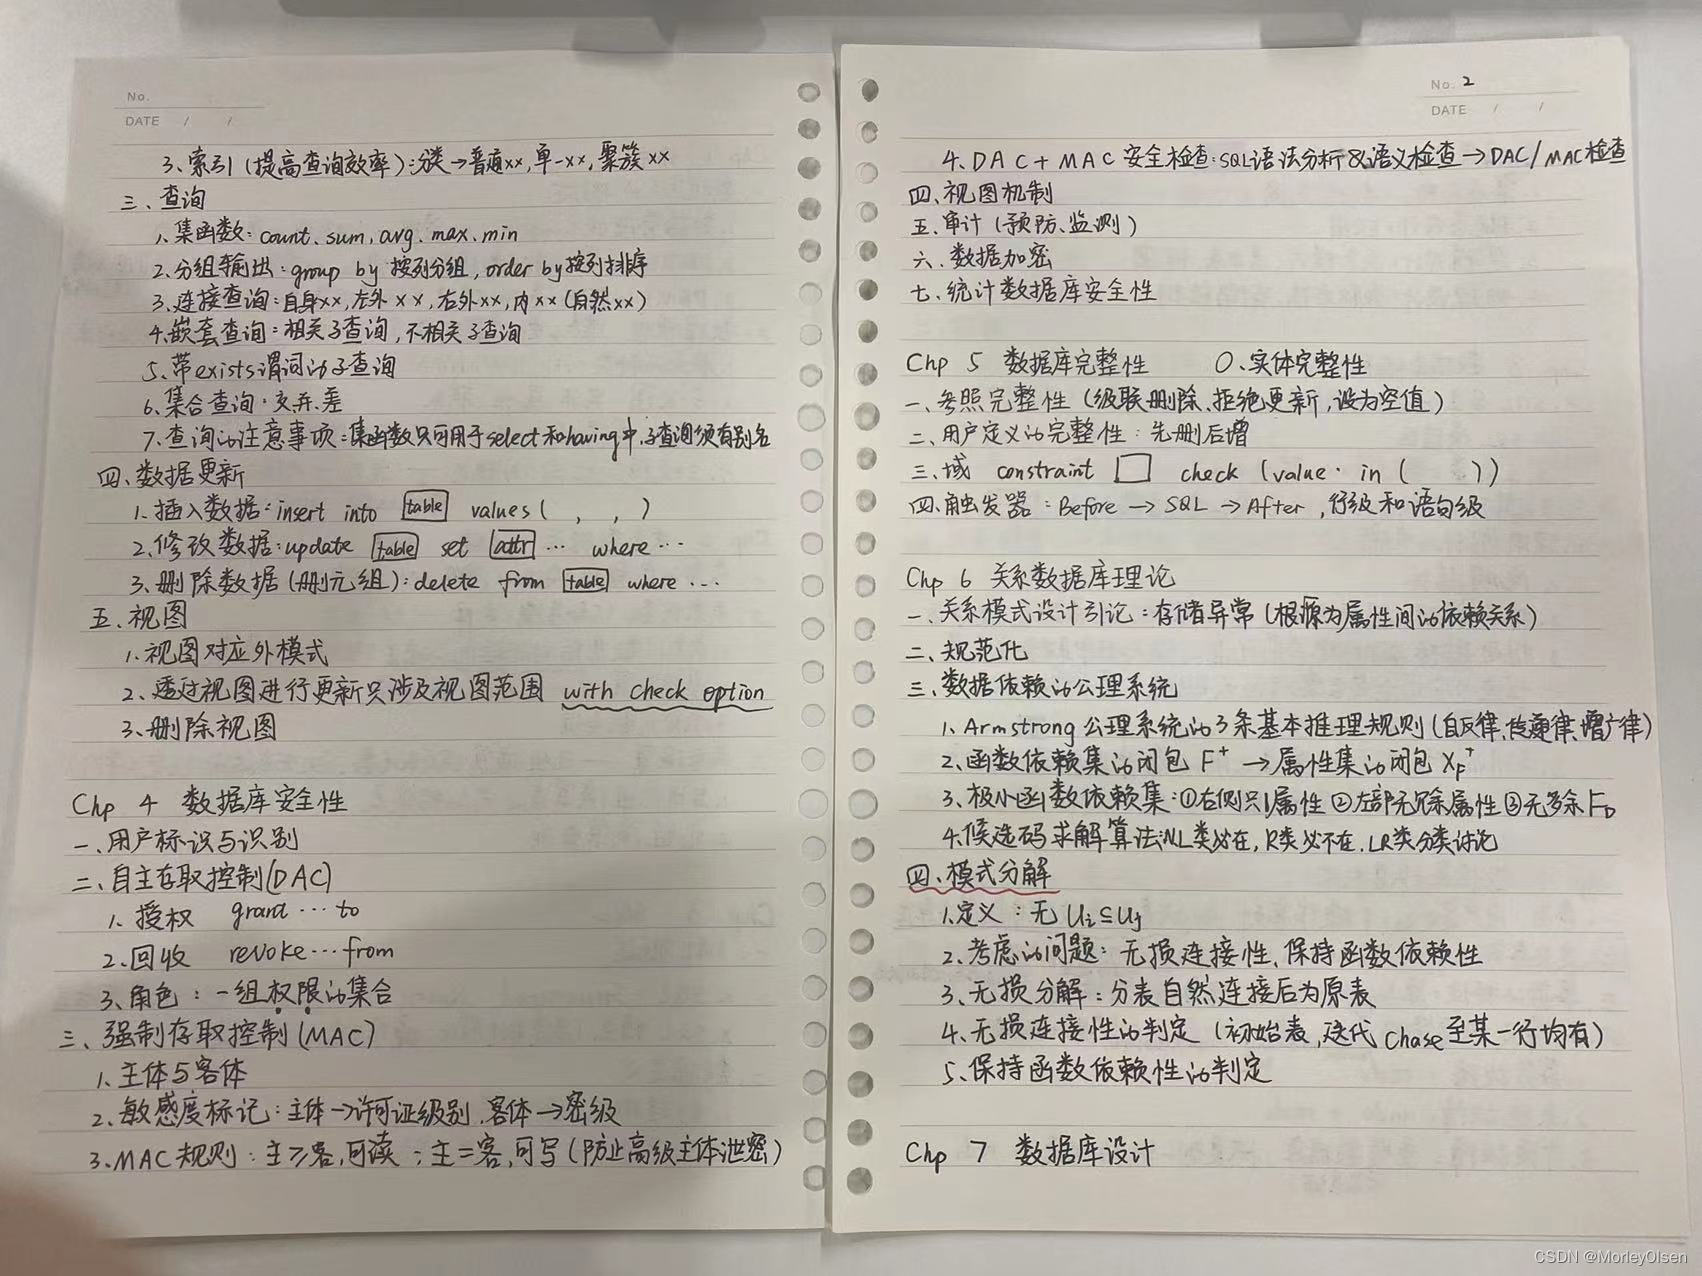 No.
DATE / /
3、索引(提高查询效率):分类→普通xx,单一xx,聚簇xx
三、查询
1、集函数:count、sum、avg、max、min
2、分组输出:group by 按列分组,order by按列排序
3、连接查询:自身xx,左外xx,右外xx,内xx(自然xx)
4、嵌套查询:相关子查询,不相关子查询
5、带exists谓词的子查询
6、集合查询:交、并、差
7、查询的注意事项:集函数只可用于select和having中,子查询须有别名
四、数据更新
1、插入数据:insert into table values( , , )
2、修改数据:update table set attr … where …
3、删除数据(删元组):delete from table where …
五、视图
1、视图对应外模式
2、透过视图进行更新只涉及视图范围 with check option
3、删除视图
Chp 4 数据库安全性
一、用户标识与识别
二、自主存取控制(DAC)
1、授权 grant … to
2、回收 revoke … from
3、角色:一组权限的集合
三、强制存取控制(MAC)
1、主体与客体
2、敏感度标记:主体→许可证级别,客体→密级
3、MAC规则:主≥客,可读;主=客,可写(防止高级主体泄密)
No. 2
DATE / /
4、DAC+MAC安全检查:SQL语法分析&语义检查→DAC/MAC检查
四、视图机制
五、审计(预防、监测)
六、数据加密
七、统计数据库安全性
Chp 5 数据库完整性 0、实体完整性
一、参照完整性(级联删除、拒绝更新,设为空值)
二、用户定义的完整性:先删后增
三、域 constraint □ check (value in ( ))
四、触发器:Before → SQL → After,行级和语句级
Chp 6 关系数据库理论
一、关系模式设计引论:存储异常(根源为属性间的依赖关系)
二、规范化
三、数据依赖的公理系统
1、Armstrong公理系统的3条基本推理规则(自反律、传递律、增广律)
2、函数依赖集的闭包 F⁺ → 属性集的闭包 X_F⁺
3、极小函数依赖集:①右侧只1属性 ②左部无冗余属性 ③无多余FD
4、候选码求解算法:NL类必在,R类必不在,LR类分类讨论
四、模式分解
1、定义:无 Ui⊆Uj
2、考虑的问题:无损连接性、保持函数依赖性
3、无损分解:分表自然连接后为原表
4、无损连接性的判定(初始表,迭代Chase至某一行均有)
5、保持函数依赖性的判定
Chp 7 数据库设计
CSDN @MorleyOlsen